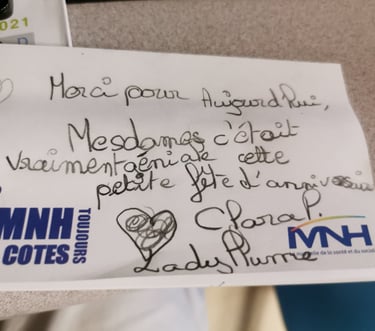 2021
Merci pour Aujourd'hui,
Mesdames c'était
vraiment géniale cette
petite fête d'anniversaire
Clara P.
Lady Plume
MNH
TOUJOURS
COTES
MNH
de la santé et du social